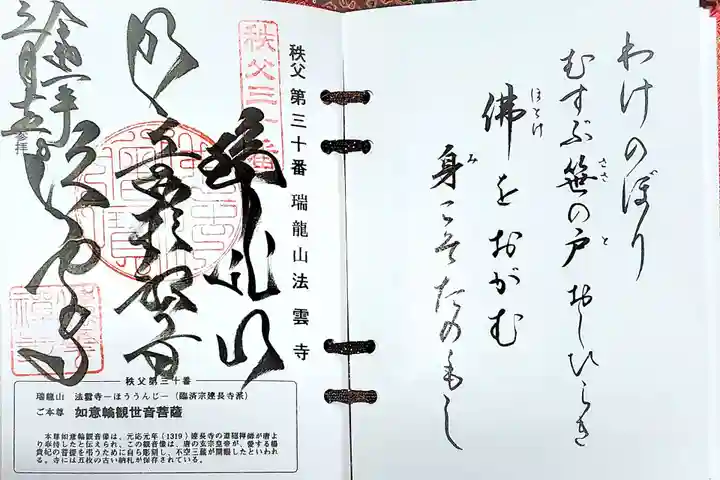 わけのぼり
むすぶ笹の戸おしひらき
ささ
と
佛をおがむ
ほとけ
身こそたのもし
み
秩父三十番
秩父第三十番 瑞龍山法雲寺
瑞龍山
如意輪観音
法雲寺
参拝
秩父第三十番
瑞龍山 法雲寺―ほううんじ―(臨済宗建長寺派)
ご本尊 如意輪観世音菩薩
本尊如意輪観音像は、元応元年(1319)建長寺の道隠禅師が唐よ
り奉持したと伝えられ、この観音像は、唐の玄宗皇帝が、愛する楊
貴妃の菩提を弔うために自ら彫刻し、不空三蔵が開眼したといわれ
る。寺には五枚の古い納札が保存されている。